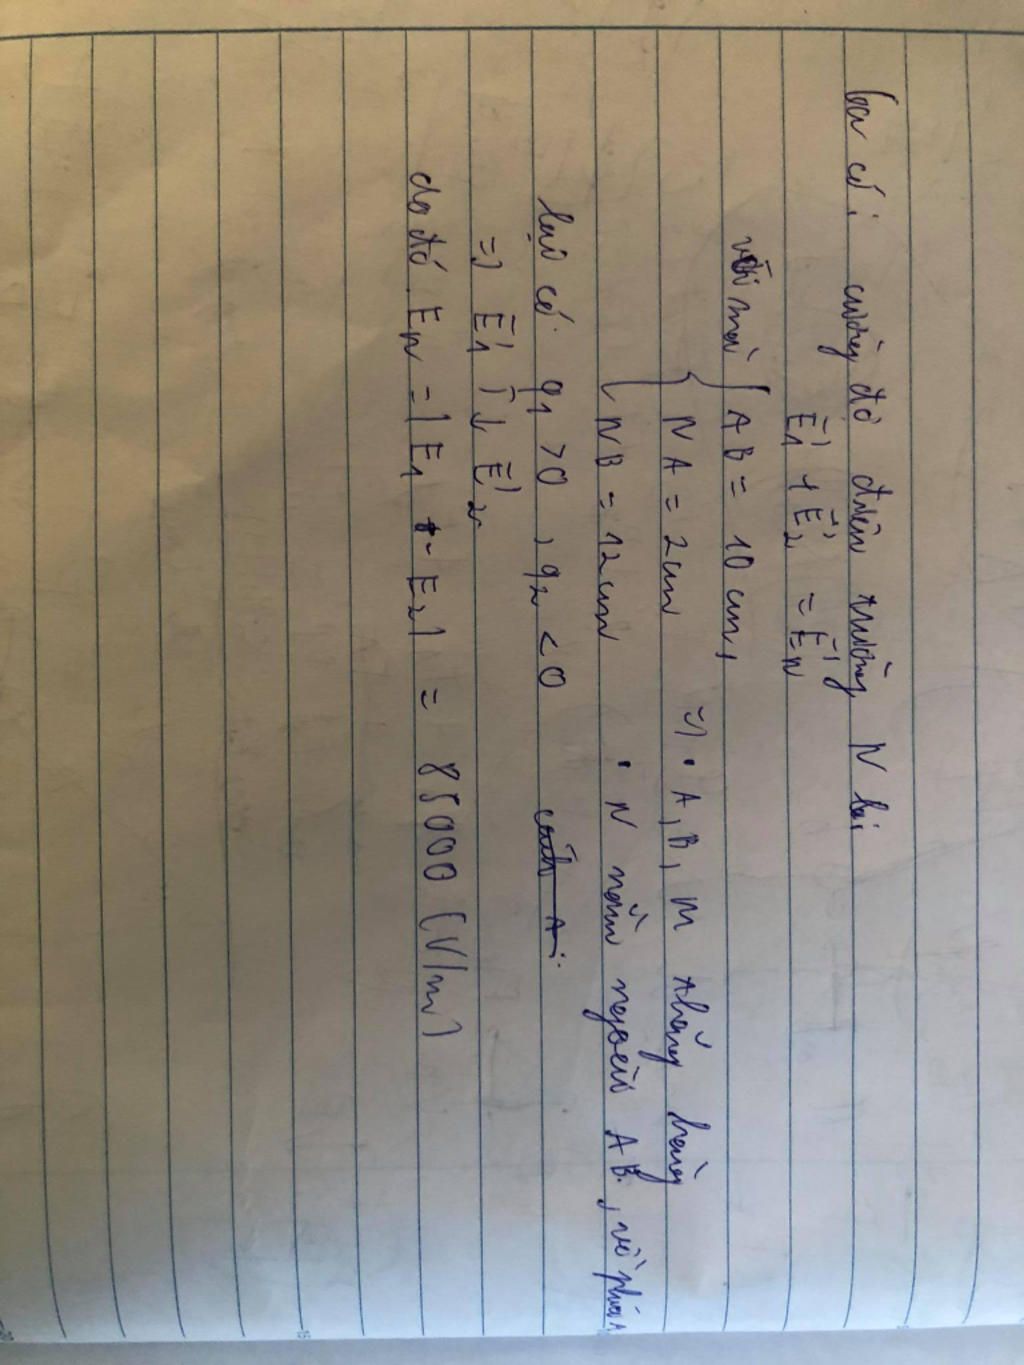 ta có: cường độ điện trường N là:
E₁ + E₂ = E_N
với mọi { AB = 10 cm,
NA = 2cm => • A, B, M thẳng hàng
NB = 12cm • N nằm ngoài AB, về phía A
lại có q₁ > 0, q₂ < 0
=> E₁ ↑↓ E₂
do đó E_N = |E₁ - E₂| = 85000 (V/m)